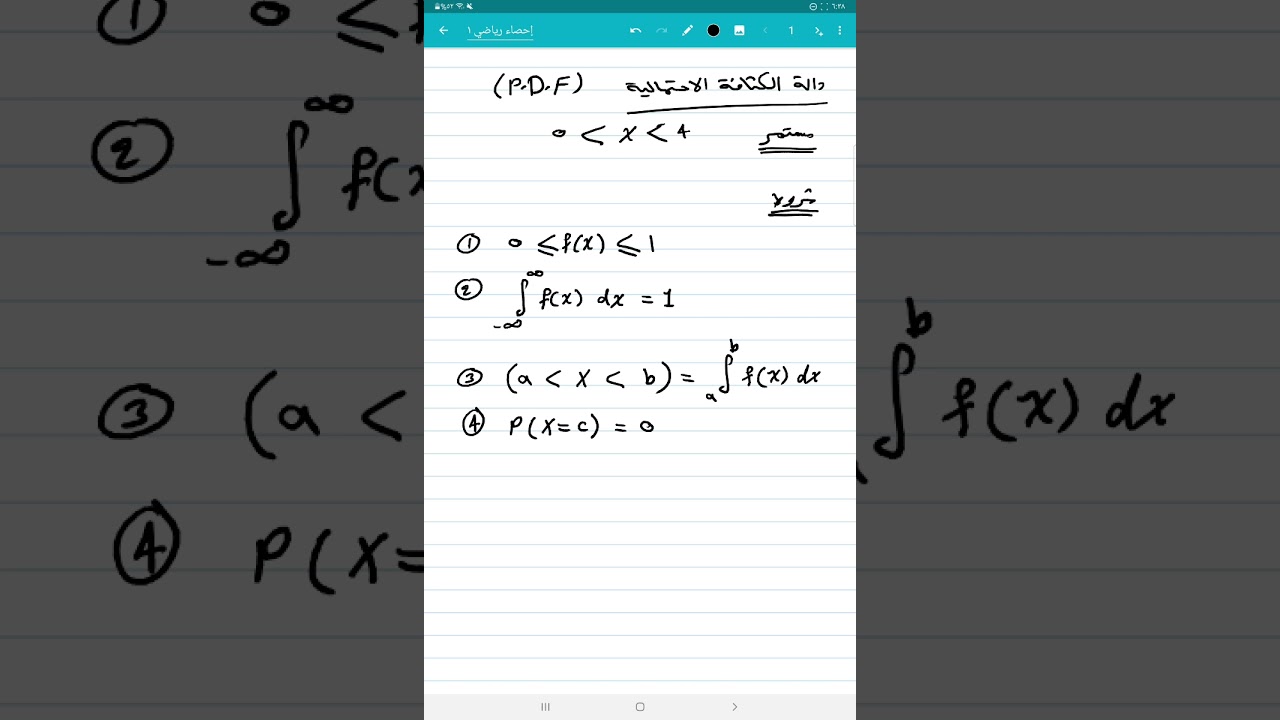 %٥٢ ٦:٢٨
إحصاء رياضي ١ 1
دالة الكثافة الاحتمالية (P.D.F)
مستمر 0 < x < 4
شروط
① 0 ≤ f(x) ≤ 1
② ∫_{-∞}^{∞} f(x) dx = 1
③ (a < X < b) = ∫_{a}^{b} f(x) dx
④ P(X=c) = 0